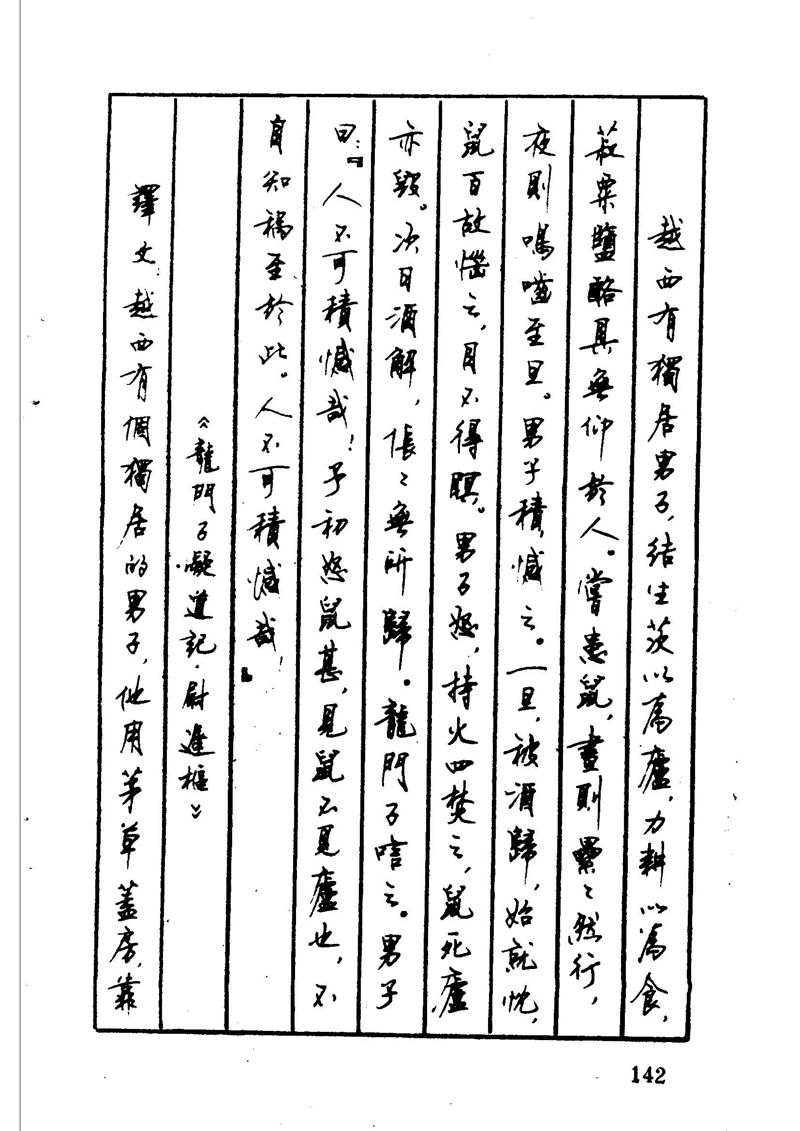 越西有獨居男子，結生茨以爲廬，力耕以爲食，
菽粟鹽酪具無仰於人。嘗患鼠，晝則纍纍然行，
夜則鳴嚙至旦。男子積憾之。一旦，被酒歸，始就枕，
鼠百故惱之，目不得瞑。男子怒，持火四焚之，鼠死廬
亦毀。次日酒解，倀倀無所歸。龍門子唁之。男子
曰：『人不可積憾哉！予初怒鼠甚，見鼠不見廬也，不
自知禍至於此。人不可積憾哉！』
《龍門子凝道記·尉遲樞》
譯文 越西有個獨居的男子，他用茅草蓋房，靠
142